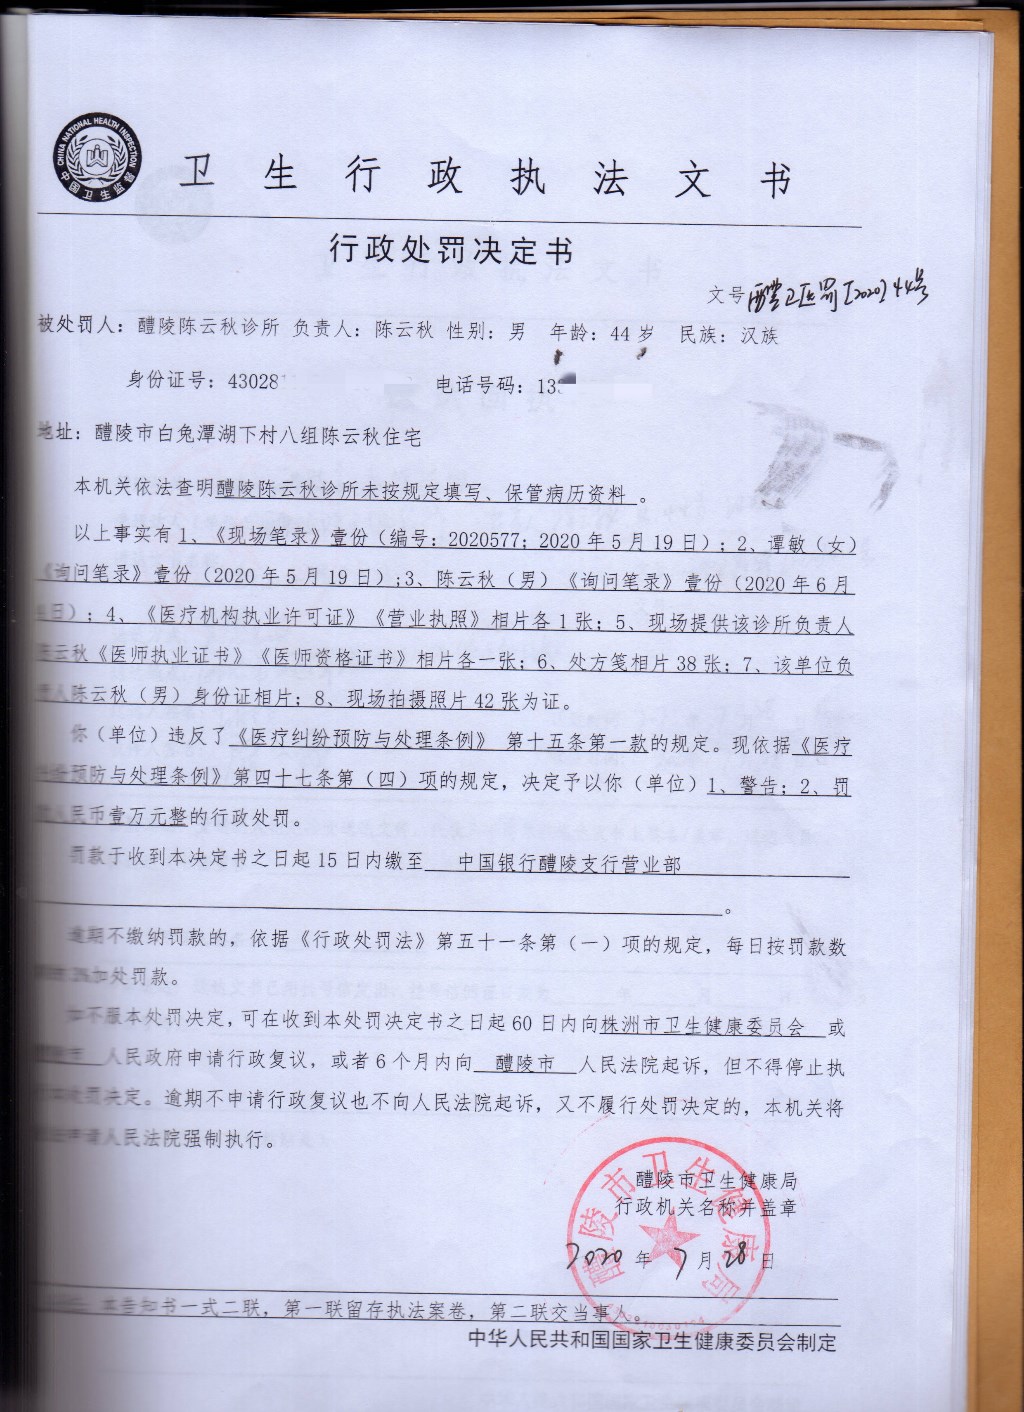 CHINA NATIONAL HEALTH INSPECTION
中国卫生监督
卫生行政执法文书
行政处罚决定书
文号 醴卫医罚[2020]44号
被处罚人：醴陵陈云秋诊所 负责人：陈云秋 性别：男 年龄：44岁 民族：汉族
身份证号：43028 电话号码：13
地址：醴陵市白兔潭湖下村八组陈云秋住宅
本机关依法查明醴陵陈云秋诊所未按规定填写、保管病历资料。
以上事实有1、《现场笔录》壹份（编号：2020577；2020年5月19日）；2、谭敏（女）
《询问笔录》壹份（2020年5月19日）;3、陈云秋（男）《询问笔录》壹份（2020年6月
日）；4、《医疗机构执业许可证》《营业执照》相片各1张；5、现场提供该诊所负责人
云秋《医师执业证书》《医师资格证书》相片各一张；6、处方笺相片38张；7、该单位负
人陈云秋（男）身份证相片；8、现场拍摄照片42张为证。
你（单位）违反了《医疗纠纷预防与处理条例》 第十五条第一款的规定。现依据《医疗
纠纷预防与处理条例》第四十七条第（四）项的规定，决定予以你（单位）1、警告；2、罚
人民币壹万元整的行政处罚。
罚款于收到本决定书之日起15日内缴至 中国银行醴陵支行营业部
。
逾期不缴纳罚款的，依据《行政处罚法》第五十一条第（一）项的规定，每日按罚款数
3%加处罚款。
如不服本处罚决定，可在收到本处罚决定书之日起60日内向株洲市卫生健康委员会 或
市 人民政府申请行政复议，或者6个月内向 醴陵市 人民法院起诉，但不得停止执
罚决定。逾期不申请行政复议也不向人民法院起诉，又不履行处罚决定的，本机关将
申请人民法院强制执行。
醴陵市卫生健康局
醴陵市卫生健康局
行政机关名称并盖章
2020年7月28日
本告知书一式二联，第一联留存执法案卷，第二联交当事人。
中华人民共和国国家卫生健康委员会制定